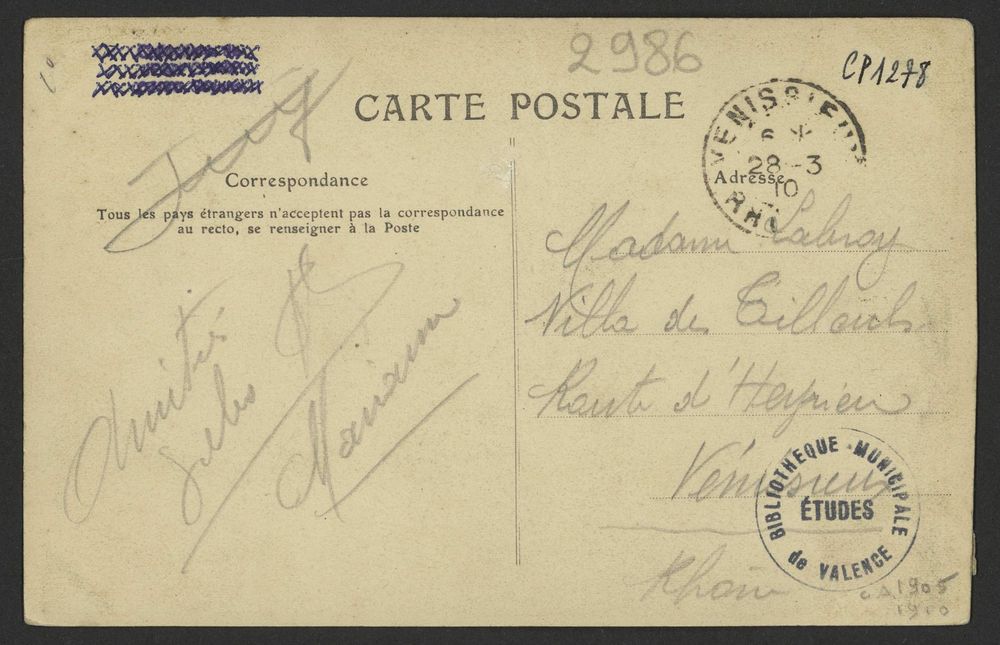 2986
CP1278
CARTE POSTALE
VENISSIEUX
6
28-3
10
RHÔ
Correspondance
Adresse
Tous les pays étrangers n'acceptent pas la correspondance
au recto, se renseigner à la Poste
Madame Labray
Villa des Tilleuls
Route d'Heyrieu
Vénissieux
Rhône
Amitiés
BIBLIOTHEQUE MUNICIPALE
ÉTUDES
de VALENCE
CA 1905
1910